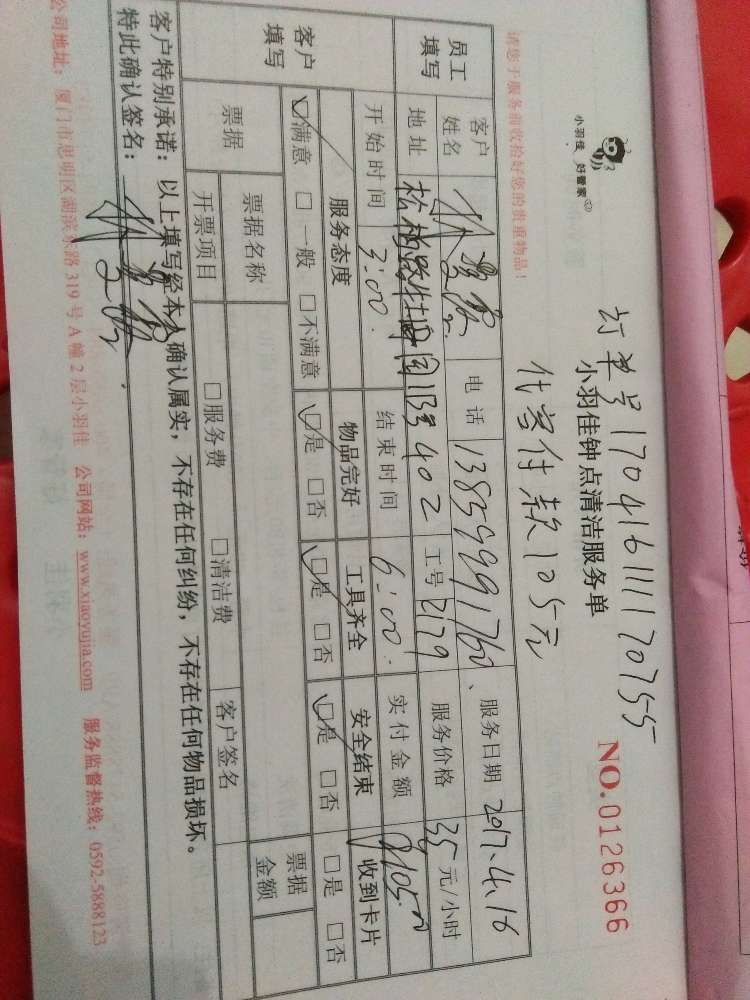 小羽佳 好管家
订单号170416111170755
小羽佳钟点清洁服务单
NO.0126366
请您于服务前收拾好您的贵重物品!
代客付款105元
员工填写
客户姓名
电话
13859991760
服务日期
2017.4.16
地址
松柏路
402
工号
2179
服务价格
35元/小时
客户填写
开始时间
3:00
结束时间
6:00
实付金额
105元
服务态度
物品完好
工具齐全
安全结束
收到卡片
满意 □一般 □不满意
是 □否
是 □否
是 □否
□是 □否
票据
票据名称
客户签名
票据金额
开票项目
□服务费 □清洁费
客户特别承诺:以上填写经本人确认属实,不存在任何纠纷,不存在任何物品损坏。
特此确认签名:
公司地址:厦门市思明区湖滨东路319号A幢2层小羽佳 公司网站:www.xiaoyujia.com 服务监督热线:0592-5888123